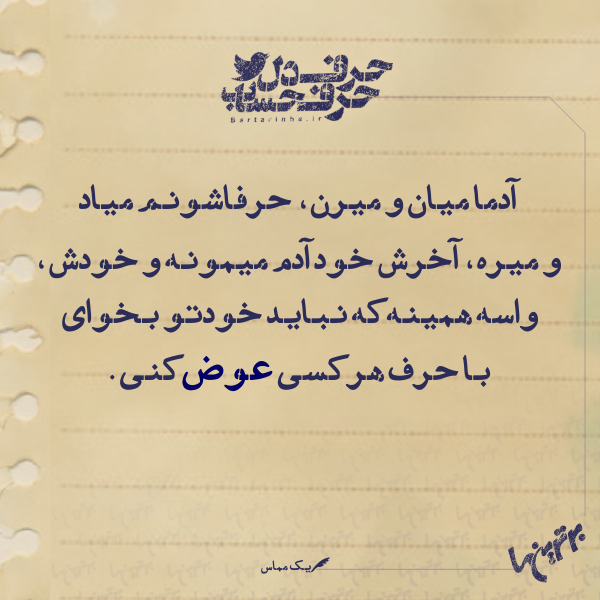 حرف دل
حرف حساب
Bartarinha.ir
آدما میان و میرن، حرفاشونم میاد
و میره، آخرش خود آدم میمونه و خودش،
واسه همینه که نباید خودتو بخوای
با حرف هر کسی عوض کنی.
یک مماس
برترین‌ها